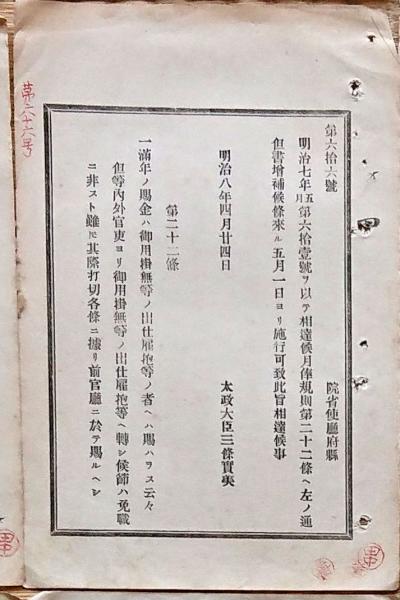 第六拾六號
院省使廳府縣
明治七年五月第六拾壹號ヲ以テ相達候月俸規則第二十二條ヘ左ノ通
但書增補候條來ル五月一日ヨリ施行可致此旨相達候事
明治八年四月廿四日
太政大臣三條實美
第二十二條
一滿年ノ賜金ハ御用掛無等ノ出仕雇抱等ノ者ヘハ賜ハラス云々
但等內外官吏ヨリ御用掛無等ノ出仕雇抱等ヘ轉シ候節ハ免職
ニ非スト雖𪜈其際打切各條ニ據リ前官廳ニ於テ賜ルヘシ
第六十六号